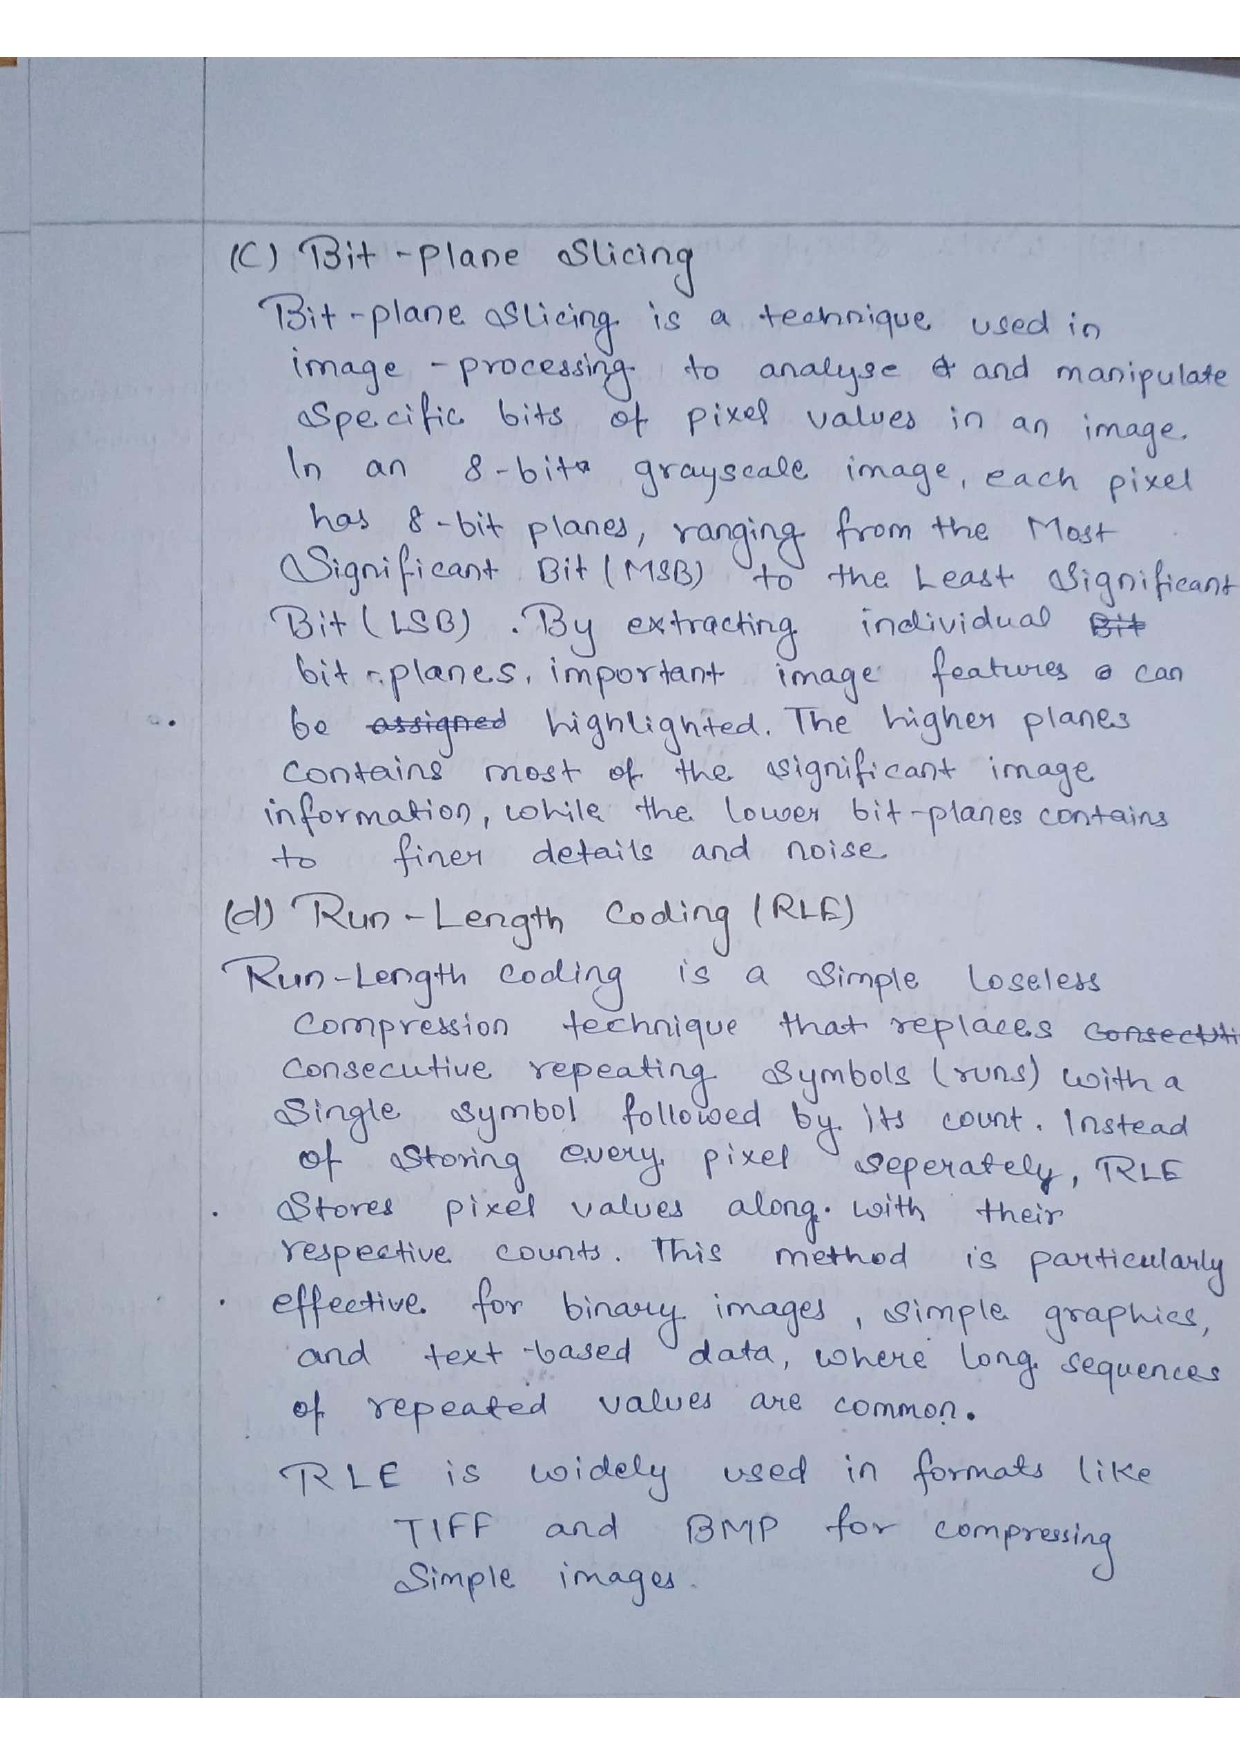 (C) Bit-plane Slicing
Bit-plane Slicing is a technique used in
image-processing to analyse and manipulate
Specific bits of pixel values in an image.
In an 8-bit grayscale image, each pixel
has 8-bit planes, ranging from the Most
Significant Bit (MSB) to the Least Significant
Bit (LSB). By extracting individual Bit
bit-planes, important image features can
be assigned highlighted. The higher planes
contains most of the significant image
information, while the lower bit-planes contains
to finer details and noise
(d) Run-Length Coding (RLE)
Run-Length coding is a Simple Loseless
Compression technique that replaces
Consecutive repeating Symbols (runs) with a
Single symbol followed by its count. Instead
of storing every pixel seperately, RLE
Stores pixel values along. with their
respective counts. This method is particularly
effective. for binary images, simple graphics,
and text-based data, where long sequences
of repeated values are common.
RLE is widely used in formats like
TIFF and BMP for compressing
Simple images.